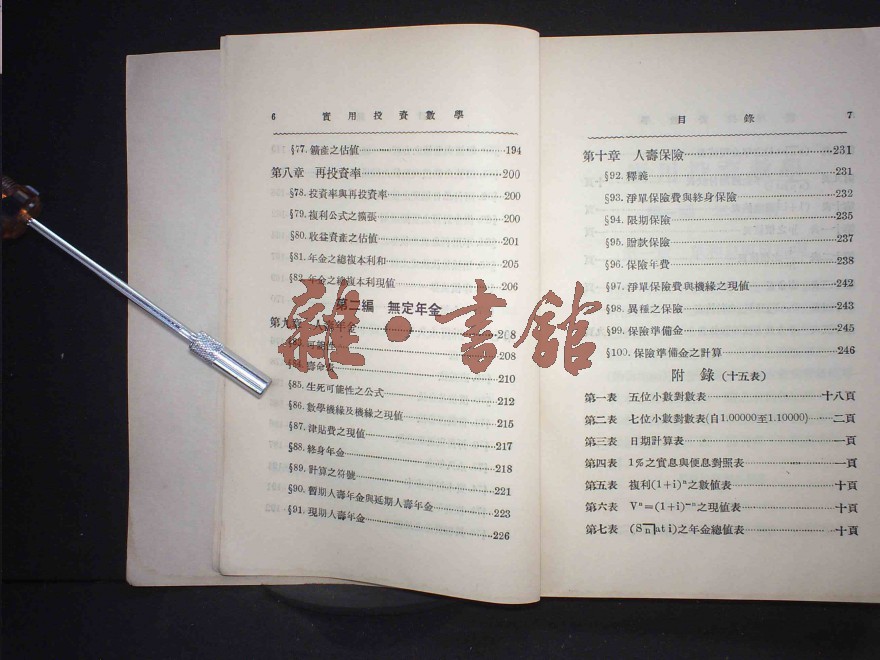 6 實用投資數學
§77. 鑛產之估值 194
第八章 再投資率 200
§78. 投資率與再投資率 200
§79. 複利公式之擴張 200
§80. 收益資產之估值 201
§81. 年金之總複本利和 205
§82. 年金之總複本利現值 206
第二編 無定年金
第九章 人壽年金 208
§83. 可能生 208
§84. 壽命表 210
§85. 生死可能性之公式 212
§86. 數學機緣及機緣之現值 215
§87. 津貼費之現值 217
§88. 終身年金 218
§89. 計算之符號 221
§90. 暫期人壽年金與延期人壽年金 223
§91. 現期人壽年金 226
目錄 7
第十章 人壽保險 231
§92. 釋義 231
§93. 淨單保險費與終身保險 232
§94. 限期保險 235
§95. 贈款保險 237
§96. 保險年費 238
§97. 淨單保險費與機緣之現值 242
§98. 異種之保險 243
§99. 保險準備金 245
§100. 保險準備金之計算 246
附錄(十五表)
第一表 五位小數對數表 十八頁
第二表 七位小數對數表(自1.00000至1.10000) 二頁
第三表 日期計算表 一頁
第四表 1%之實息與便息對照表 一頁
第五表 複利(1+i)ⁿ之數值表 十頁
第六表 Vⁿ=(1+i)⁻ⁿ之現值表 十頁
第七表 (Sn̅|at i)之年金總值表 十頁
雜·書館